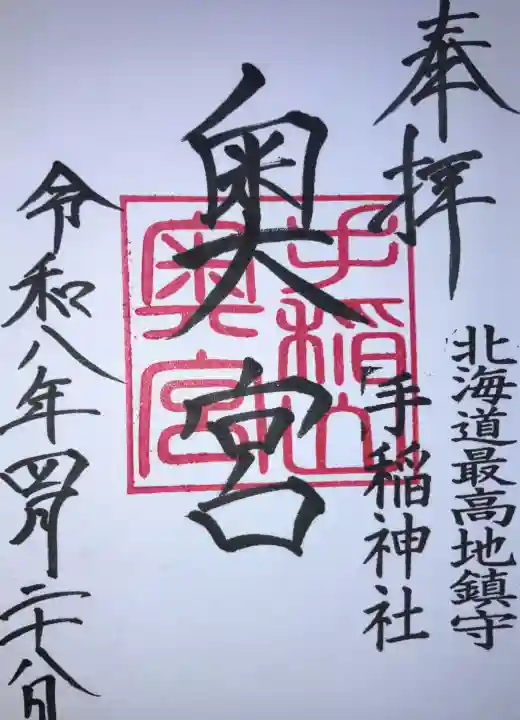 奉拝
北海道最高地鎮守
手稲神社
奥宮
手稲山
奥宮
令和八年四月二十八日